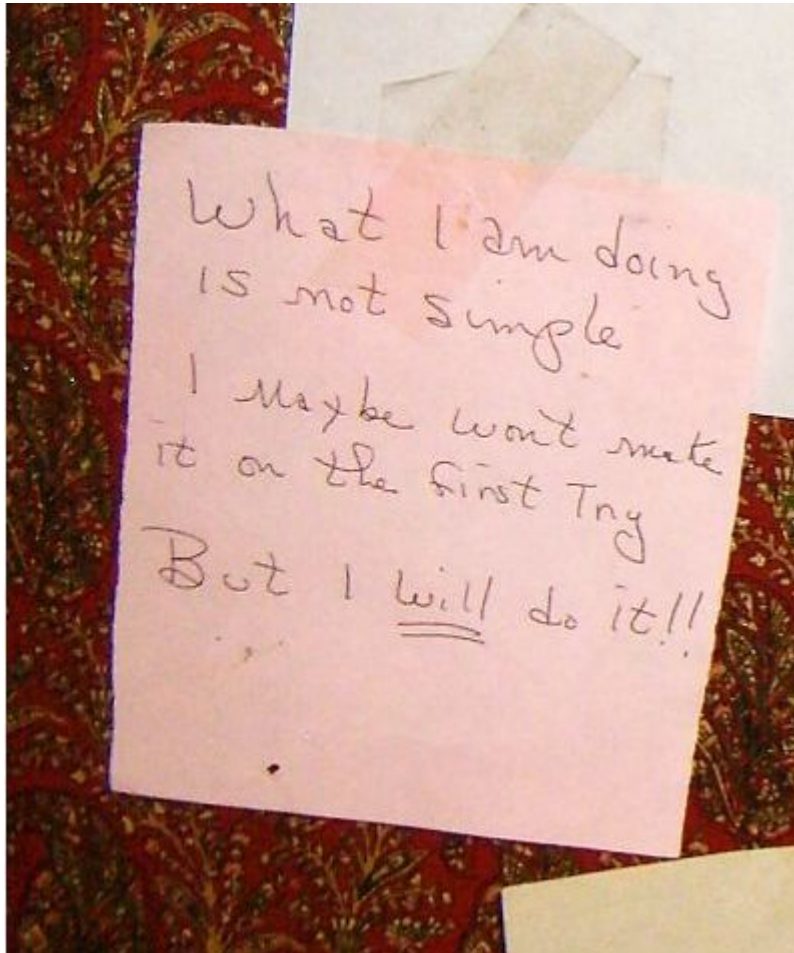 What I am doing
is not simple
I Maybe won't make
it on the first Try
But I will do it!!